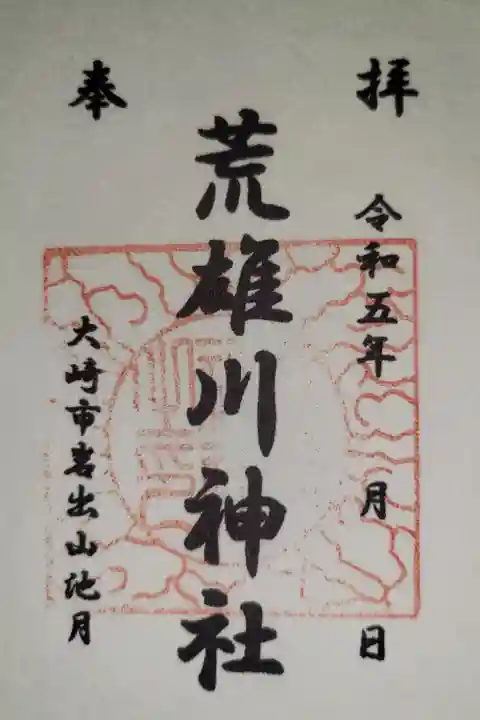 奉拝
令和五年 月 日
荒雄川神社
大崎市岩出山池月